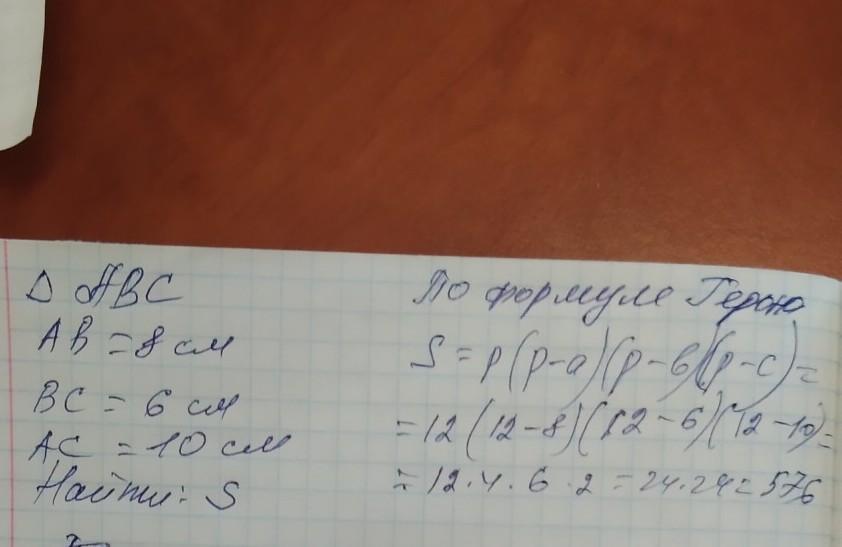 Δ ABC
AB = 8 см
BC = 6 см
AC = 10 см
Найти: S
По формуле Герона
S = p(p-a)(p-в)(p-c) =
= 12(12-8)(12-6)(12-10) =
= 12·4·6·2 = 24·24 = 576